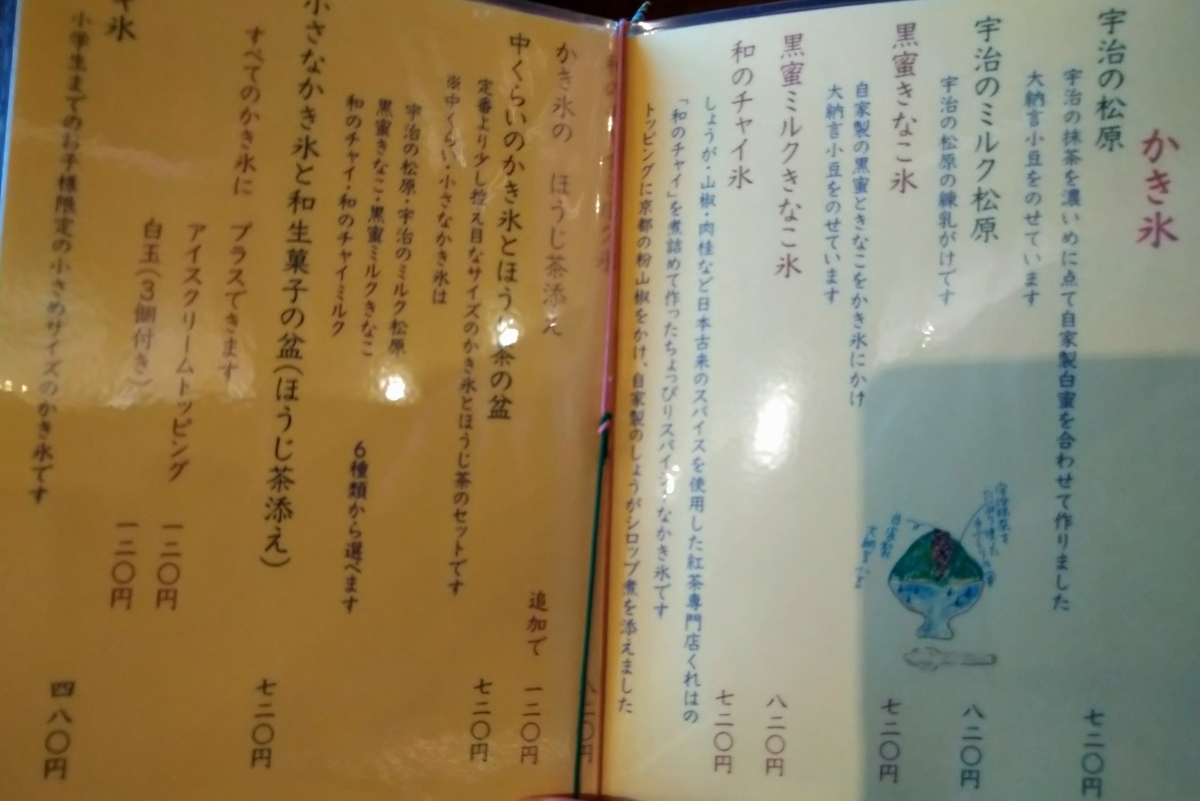 かき氷
宇治の松原
宇治の抹茶を濃いめに点て自家製白蜜を合わせて作りました
大納言小豆をのせています
七二〇円
宇治のミルク松原
宇治の松原の練乳がけです
八二〇円
黒蜜きなこ氷
自家製の黒蜜ときなこをかき氷にかけ
大納言小豆をのせています
七二〇円
黒蜜ミルクきなこ氷
八二〇円
和のチャイ氷
七二〇円
しょうが・山椒・肉桂など日本古来のスパイスを使用した紅茶専門店くれはの
「和のチャイ」を煮詰めて作ったちょっぴりスパイシーなかき氷です
トッピングに京都の粉山椒をかけ、自家製のしょうがシロップ煮を添えました
八二〇円
かき氷の ほうじ茶添え
追加で 一二〇円
中くらいのかき氷とほうじ茶の盆
七二〇円
定番より少し控え目なサイズのかき氷とほうじ茶のセットです
※中くらい・小さなかき氷は
宇治の松原・宇治のミルク松原
黒蜜きなこ・黒蜜ミルクきなこ
和のチャイ・和のチャイミルク
6種類から選べます
小さなかき氷と和生菓子の盆(ほうじ茶添え)
七二〇円
すべてのかき氷に プラスできます
アイスクリームトッピング 一二〇円
白玉(3個付き) 一二〇円
氷
四八〇円
小学生までのお子様限定の小さめサイズのかき氷です